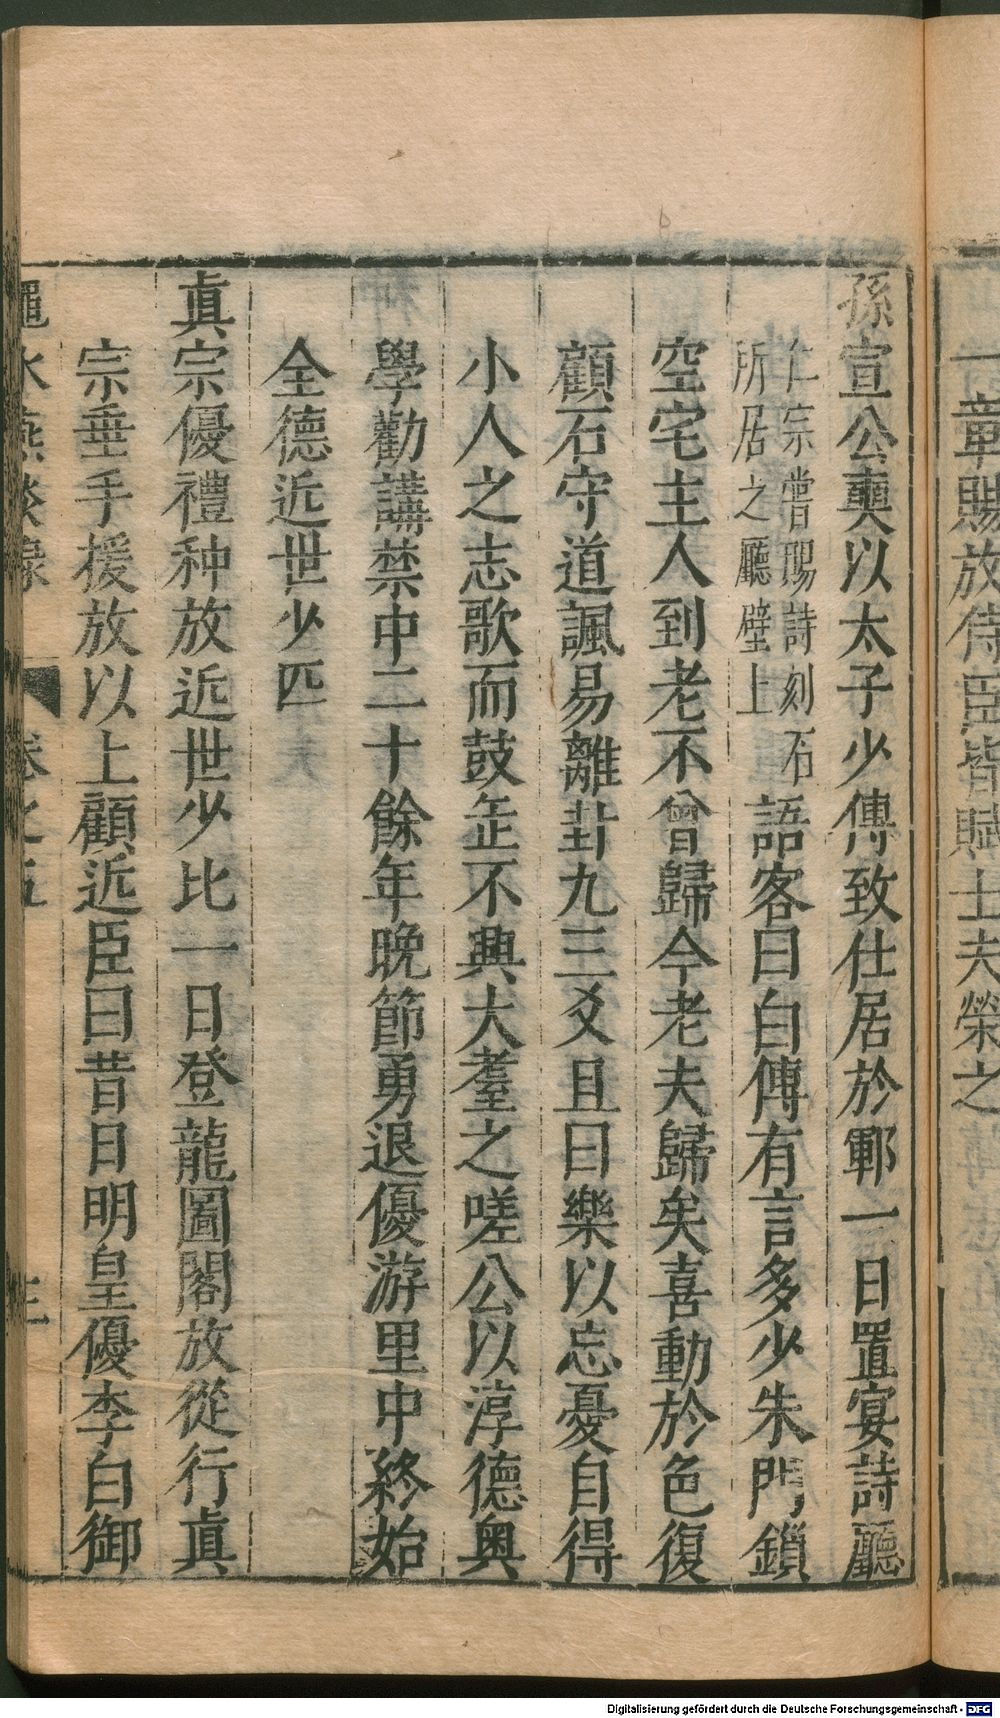 一章賜放侍臣皆賦士大夫榮之
孫宣公奭以太子少傅致仕居於鄆一日置宴詩廳
仁宗嘗賜詩刻石
所居之廳壁上
語客曰白傅有言多少朱門鎖
空宅主人到老不曾歸今老夫歸矣喜動於色復
顧石守道諷易離卦九三爻且曰樂以忘憂自得
小人之志歌而鼓缶不興大耋之嗟公以淳德奥
學勸講禁中二十餘年晚節勇退優游里中終始
全德近世少匹
真宗優禮种放近世少比一日登龍圖閣放從行真
宗垂手援放以上顧近臣曰昔日明皇優李白御
澠水燕談錄 卷之五
Digitalisierung gefördert durch die Deutsche Forschungsgemeinschaft - DFG